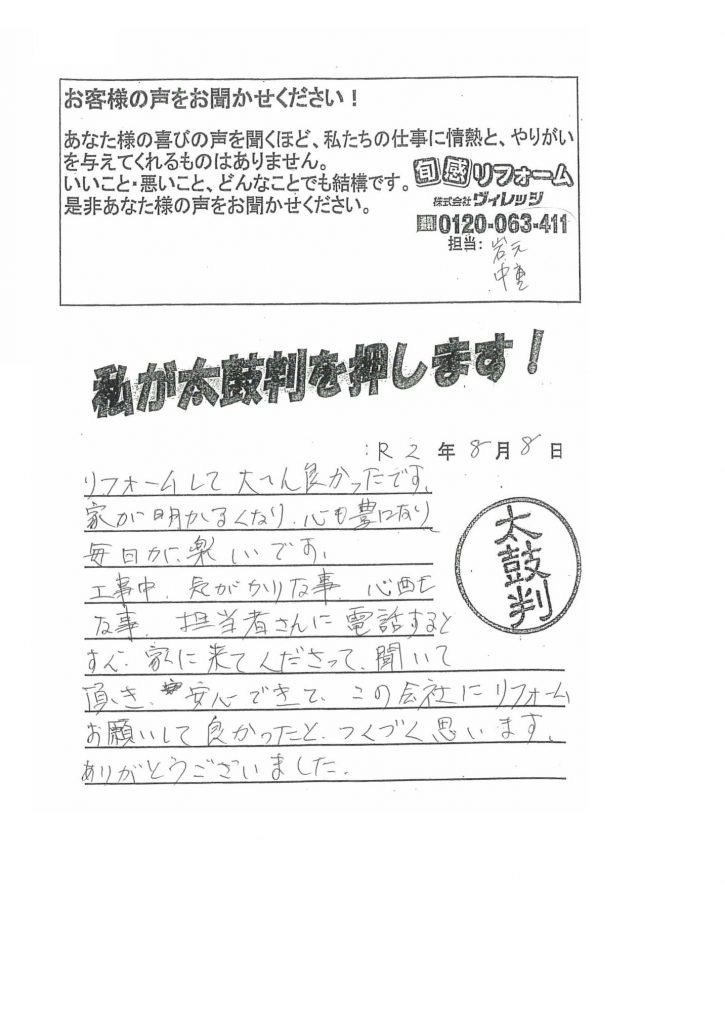 お客様の声をお聞かせください！
あなた様の喜びの声を聞くほど、私たちの仕事に情熱と、やりがい
を与えてくれるものはありません。
いいこと・悪いこと、どんなことでも結構です。
是非あなた様の声をお聞かせください。
旬感リフォーム
株式会社ヴィレッジ
0120-063-411
担当：岩元
中
私が太鼓判を押します！
R 2 年 8 月 8 日
リフォームして 大へん良かったです。
家が明かるくなり、心も豊になり
毎日が楽しいです。
太鼓判
工事中、気がかりな事、心配
な事、担当者さんに電話すると
すぐ、家に来てくださって、聞いて
頂き、安心できて、この会社にリフォーム
お願いして良かったと、つくづく思います。
ありがとうございました。